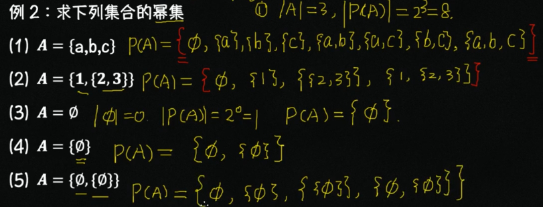 例 2：求下列集合的幂集 ① |A|=3, |P(A)|=2³=8.
(1) A = {a,b,c} P(A)={φ,{a},{b},{c},{a,b},{a,c},{b,c},{a,b,c}}
(2) A = {1,{2,3}} P(A)={φ, {1}, {{2,3}}, {1,{2,3}}}
(3) A = ∅ |φ|=0 |P(A)|=2⁰=1 P(A)={φ}.
(4) A = {∅} P(A)= {φ, {φ}}
(5) A = {∅,{∅}} P(A)={φ, {φ}, {{φ}}, {φ,{φ}}}